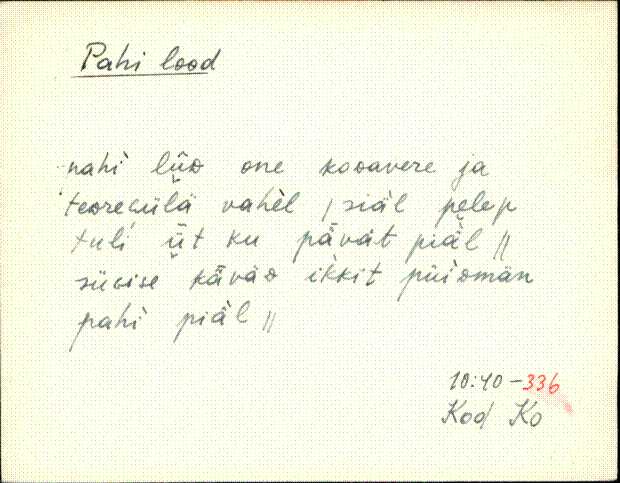 Pahi lood
pahi lǖo one kooavere ja
teorecülä vahèl / siäl pelep
tuĺi ǖt ku pävät piäl //
sücise käväo ikkit püiomän
pahi piäl //
10:40-336
Kod Ko